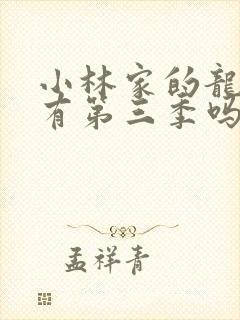 小林家的龍
有第三季吗
孟祥青